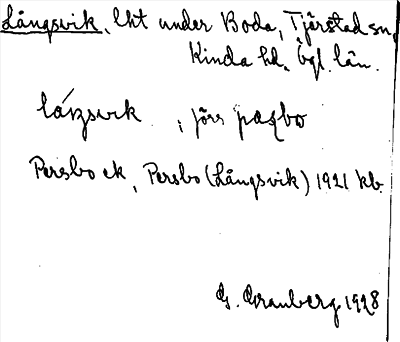 Långsvik, lht under Boda, Tjärstad sn,
Kinda hd, Ögl. län.
Persbo ck, Persbo (Långsvik) 1921 kb.
G. Granberg 1928